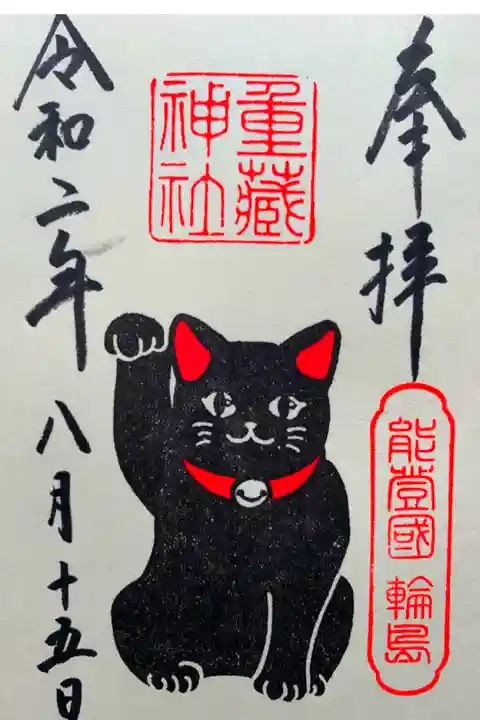 奉拝
能登國 輪島
重藏
神社
令和二年八月十五日